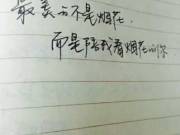 最美的不是烟花
而是陪我看烟花的你